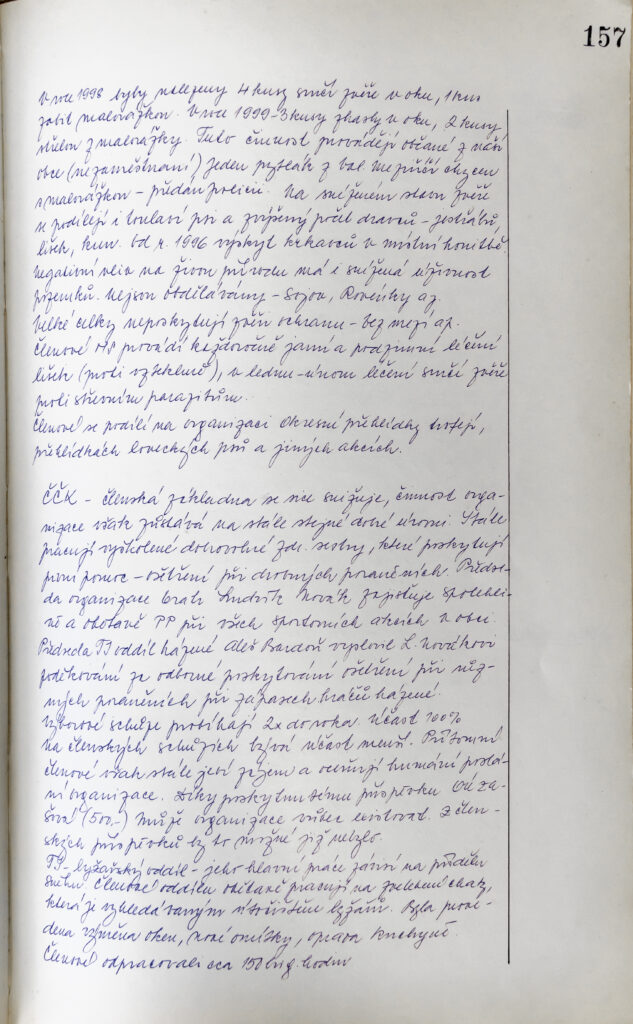 157
V roce 1998 byly nalezeny 4 kusy srnčí zvěře v oku, 1 kus
zabit malorážkou. V roce 1999 - 3 kusy zhasly v oku, 2 kusy
střelou z malorážky. Tuto činnost provádějí občané z naší
obce (nezaměstnaní) jeden pytlák z Val. Meziříčí chycen
s malorážkou - předán policii. Na sníženém stavu zvěře
se podílejí i toulaví psi a zvýšený počet dravců - jestřábů,
lišek, kun. Od r. 1996 výskyt krkavců v místní honitbě.
Negativní vliv na živou přírodu má i snížená úživnost
pozemků. Nejsou obdělávány - Sojov, Rovénky aj.
Velké celky neposkytují zvěři ochranu - bez mezí ap.
Členové MS provádí každoročně jarní a podzimní léčení
lišek (proti vzteklině), v lednu - únoru léčení srnčí zvěře
proti střevním parazitům.
Členové se podílí na organizaci Okresní přehlídky trofejí,
přehlídkách loveckých psů a jiných akcích.
ČČK - členská základna se sice snižuje, činnost orga-
nizace však zůstává na stále stejné dobré úrovni. Stále
pracují vyškolené dobrovolné zdr. sestry, které poskytují
první pomoc - ošetření při drobných poraněních. Předse-
da organizace bratr Ludvík Novák zajišťuje spolehli-
vě a obětavě PP při všech sportovních akcích v obci.
Předseda TJ oddíl házené Aleš Bardoň vyslovil L. Novákovi
poděkování za odborné poskytování ošetření při růz-
ných poraněních při zápasech hráčů házené.
Výborové schůze probíhají 2x do roka. Účast 100%
na členských schůzích bývá účast menší. Přítomní
členové však stále jeví zájem a oceňují humánní poslá-
ní organizace. Díky poskytnutému příspěvku OÚ Za-
šová (500,-) může organizace vůbec existovat. Z člen-
ských příspěvků by to možné již nebylo.
TJ - lyžařský oddíl - jeho hlavní práce závisí na přídělu
sněhu. Členové oddílu obětavě pracují na zvelebení chaty,
která je vyhledávaným útočištěm lyžařů. Byla prove-
dena výměna oken, nové omítky, oprava kuchyně.
Členové odpracovali cca 150 brig. hodin